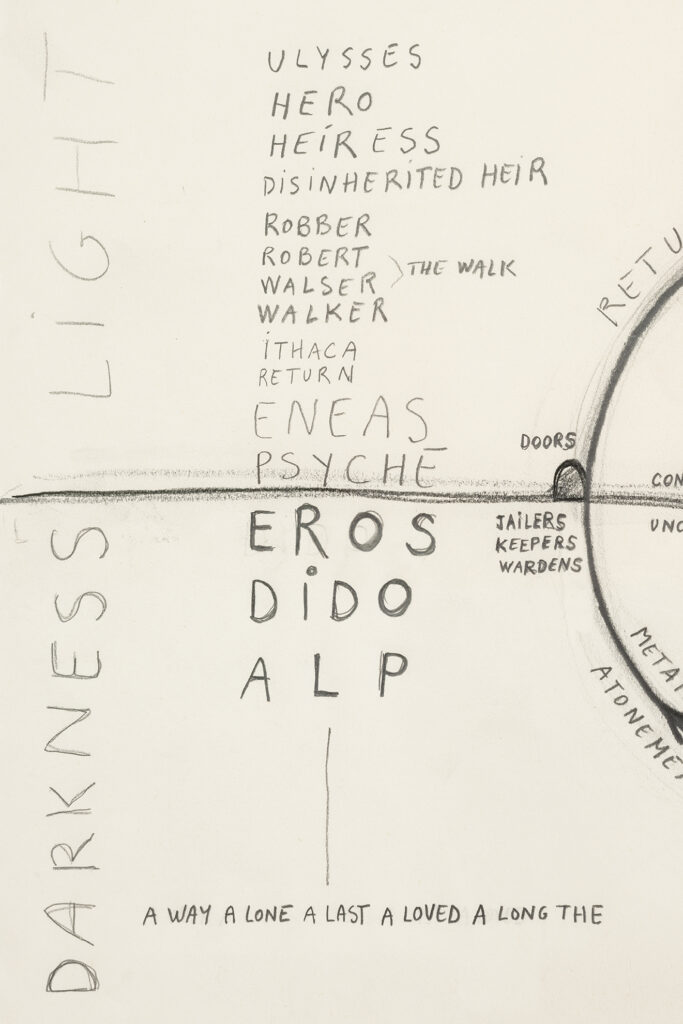 LİGHT
ULYSSES
HERO
HEİRESS
DİSİNHERİTED HEİR
ROBBER
ROBERT
WALSER
THE WALK
WALKER
İTHACA
RETURN
ENEAS
PSYCHE
RETU
DOORS
CON
EROS
JAİLERS
KEEPERS
WARDENS
UNC
DİDO
ALP
METAP
ATONEME
DARKNESS
A WAY A LONE A LAST A LOVED A LONG THE